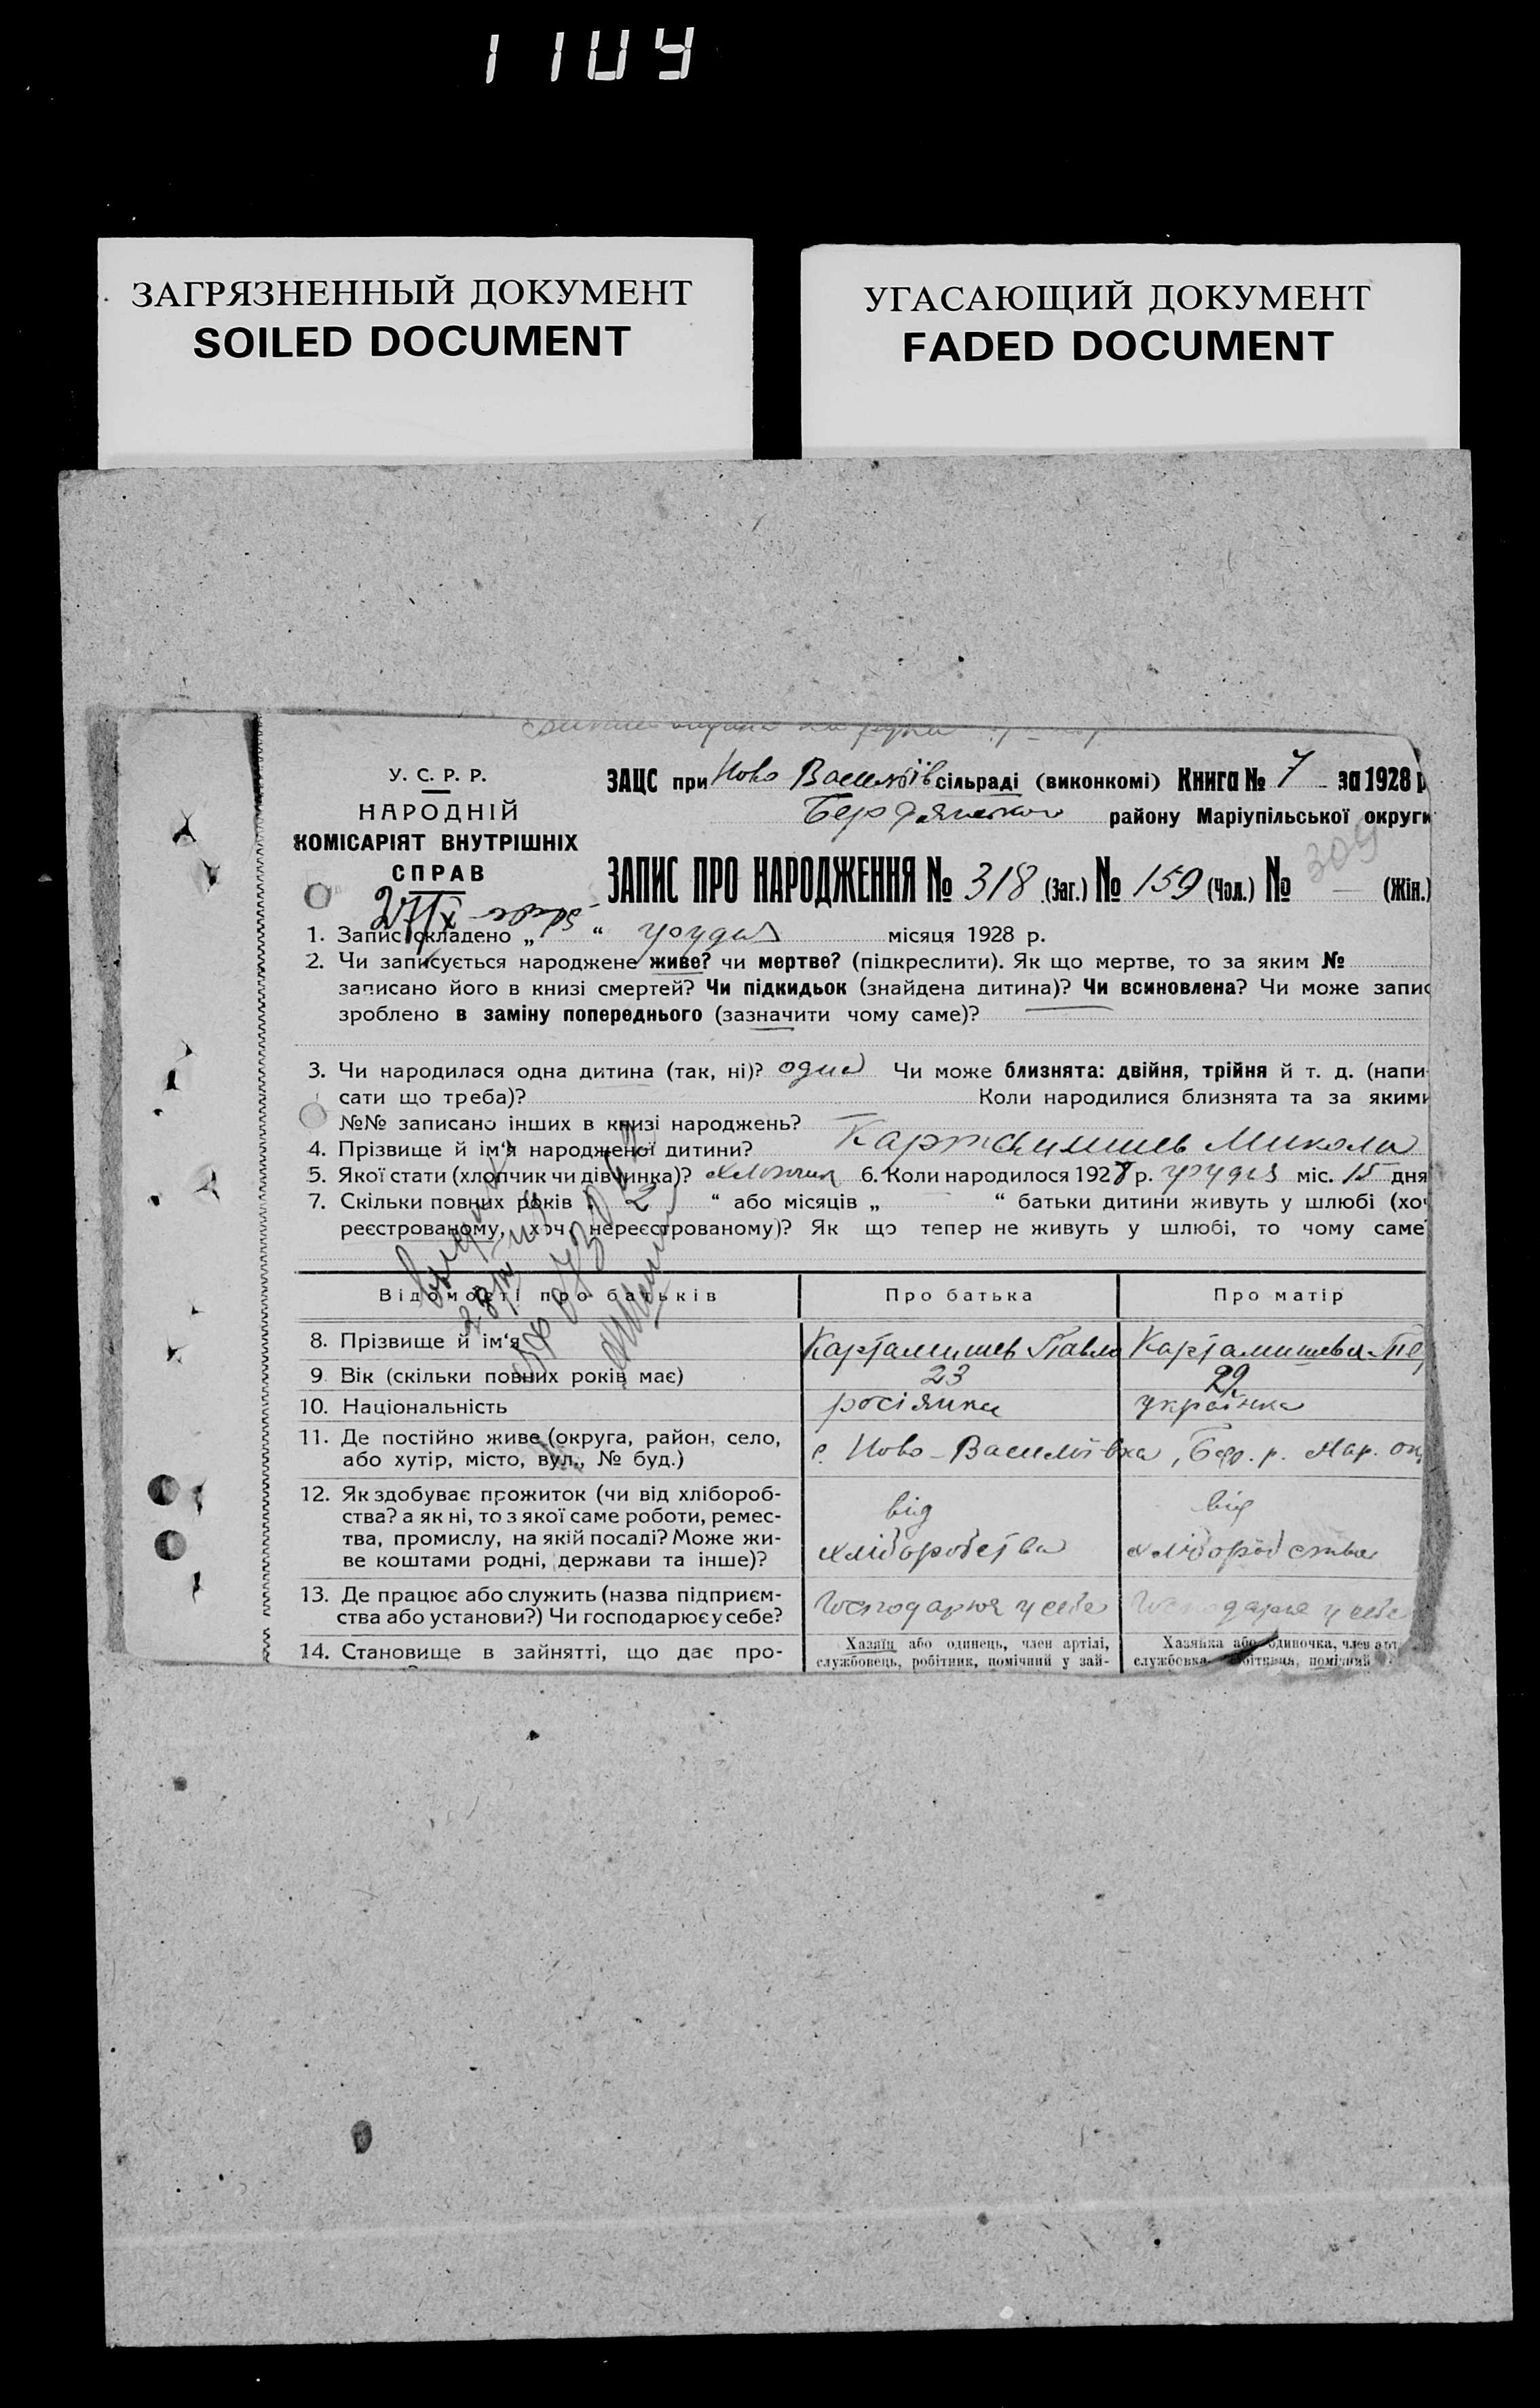 1109
ЗАГРЯЗНЕННЫЙ ДОКУМЕНТ
SOILED DOCUMENT
УГАСАЮЩИЙ ДОКУМЕНТ
FADED DOCUMENT
У. С. Р. Р.
НАРОДНІЙ
КОМІСАРІЯТ ВНУТРІШНІХ
СПРАВ
ЗАЦС при Ново Василів сільраді (виконкомі) Книга № 7 за 1928 р
Бердянського району Маріупільської округи
309
ЗАПИС ПРО НАРОДЖЕННЯ № 318 (Заг.) № 159 (Чол.) № — (Жін.)
1. Запис складено „ “ грудня місяця 1928 р.
2. Чи записується народжене живе? чи мертве? (підкреслити). Як що мертве, то за яким №
записано його в книзі смертей? Чи підкидьок (знайдена дитина)? Чи всиновлена? Чи може запис
зроблено в заміну попереднього (зазначити чому саме)?
3. Чи народилася одна дитина (так, ні)? одна Чи може близнята: двійня, трійня й т. д. (напи-
сати що треба)? Коли народилися близнята та за якими
№№ записано інших в книзі народжень?
4. Прізвище й ім‘я народженої дитини? Картамишев Микола
5. Якої стати (хлопчик чи дівчинка)? хлопчик 6. Коли народилося 1928 р. грудня міс. 15 дня
7. Скільки повних років „ 2 “ або місяців „ “ батьки дитини живуть у шлюбі (хоч
реєстрованому, хоч нереєстрованому)? Як що тепер не живуть у шлюбі, то чому саме?
Відомості про батьків Про батька Про матір
8. Прізвище й ім‘я Картамишев Павло Картамишева
9. Вік (скільки повних років має) 23 22
10. Національність росіянин українка
11. Де постійно живе (округа, район, село, с. Ново-Василівка, Бер. р. Мар. ок
або хутір, місто, вул., № буд.)
12. Як здобуває прожиток (чи від хлібороб- від від
ства? а як ні, то з якої саме роботи, ремес-
тва, промислу, на якій посаді? Може жи- хліборобства хліборобства
ве коштами родні, держави та інше)?
13. Де працює або служить (назва підприєм- Господарює у себе Господарює у себе
ства або установи?) Чи господарює у себе?
14. Становище в зайнятті, що дає про- Хазяїн або одинець, член артілі, Хазяйка або одиночка, член арт
службовець, робітник, помічний у зай- службовка, робітниця, помічний